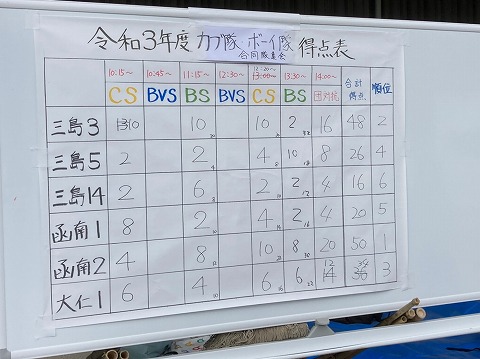 令和3年度 カブ隊 ボーイ隊 得点表
合同隊集会
10:15〜 10:45〜 11:15〜 12:30〜 12:20〜 13:00〜 13:30〜 14:00〜 合計得点 順位
CS BVS BS BVS CS BS 団対抗
三島3 10 10 10 2 16 48 2
三島5 2 2 4 10 8 26 4
三島14 2 6 2 2 4 16 6
函南1 8 2 4 2 4 20 5
函南2 4 8 10 8 20 50 1
大仁1 6 4 6 6 12 14 34 36 3